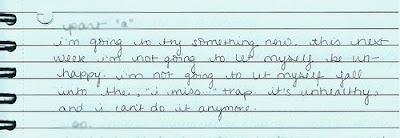 part "a"
i'm going to try something new. this next
week i'm not going to let myself be un-
happy. i'm not going to let myself fall
into the "i miss" trap. it's unhealthy,
and i can't do it anymore.